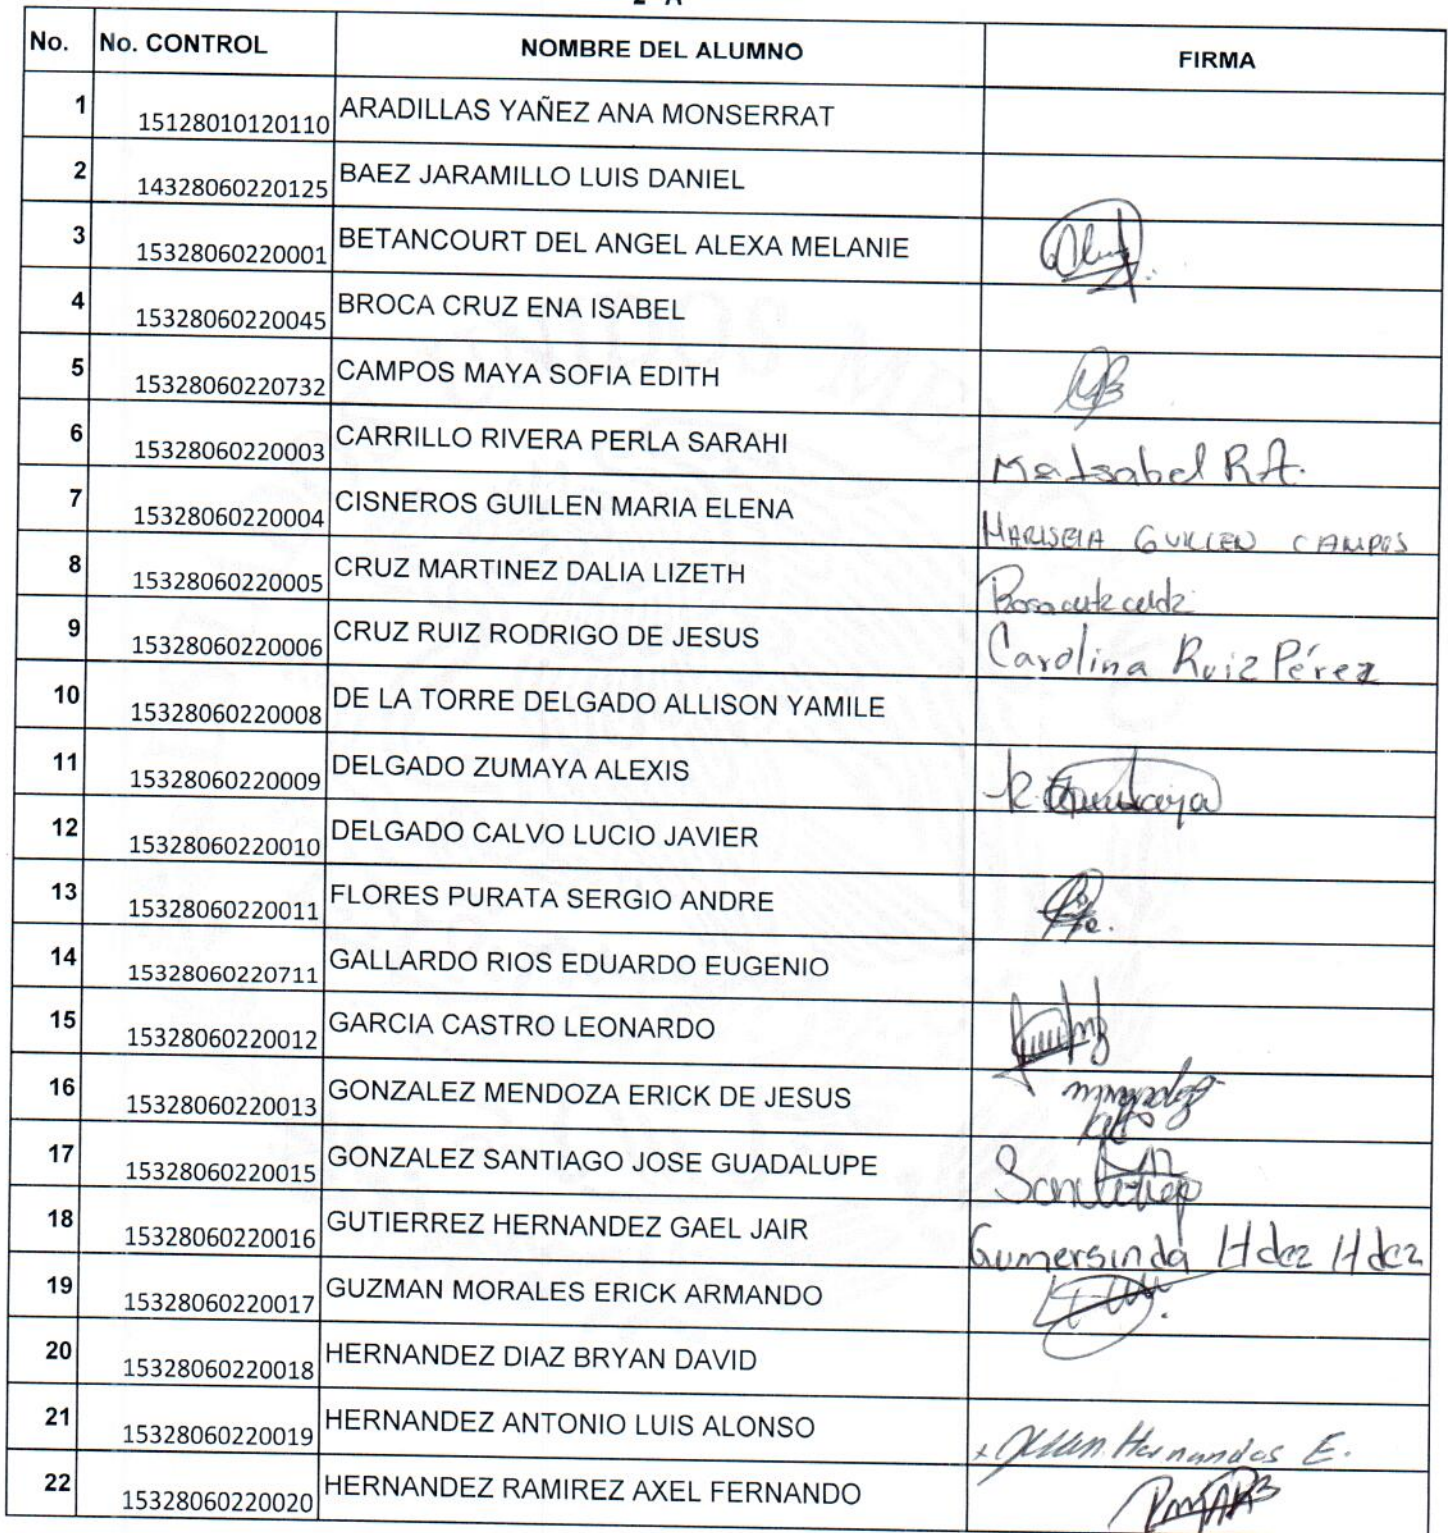 2° A
No. No. CONTROL NOMBRE DEL ALUMNO FIRMA
1 15128010120110 ARADILLAS YAÑEZ ANA MONSERRAT
2 14328060220125 BAEZ JARAMILLO LUIS DANIEL
3 15328060220001 BETANCOURT DEL ANGEL ALEXA MELANIE
4 15328060220045 BROCA CRUZ ENA ISABEL
5 15328060220732 CAMPOS MAYA SOFIA EDITH
6 15328060220003 CARRILLO RIVERA PERLA SARAHI Ma Isabel R.A.
7 15328060220004 CISNEROS GUILLEN MARIA ELENA MARISELA GUILLEN CAMPOS
8 15328060220005 CRUZ MARTINEZ DALIA LIZETH
9 15328060220006 CRUZ RUIZ RODRIGO DE JESUS Carolina Ruiz Pérez
10 15328060220008 DE LA TORRE DELGADO ALLISON YAMILE
11 15328060220009 DELGADO ZUMAYA ALEXIS
12 15328060220010 DELGADO CALVO LUCIO JAVIER
13 15328060220011 FLORES PURATA SERGIO ANDRE
14 15328060220711 GALLARDO RIOS EDUARDO EUGENIO
15 15328060220012 GARCIA CASTRO LEONARDO
16 15328060220013 GONZALEZ MENDOZA ERICK DE JESUS
17 15328060220015 GONZALEZ SANTIAGO JOSE GUADALUPE
18 15328060220016 GUTIERREZ HERNANDEZ GAEL JAIR Gumersinda Hdez Hdez
19 15328060220017 GUZMAN MORALES ERICK ARMANDO
20 15328060220018 HERNANDEZ DIAZ BRYAN DAVID
21 15328060220019 HERNANDEZ ANTONIO LUIS ALONSO Hernandes E.
22 15328060220020 HERNANDEZ RAMIREZ AXEL FERNANDO